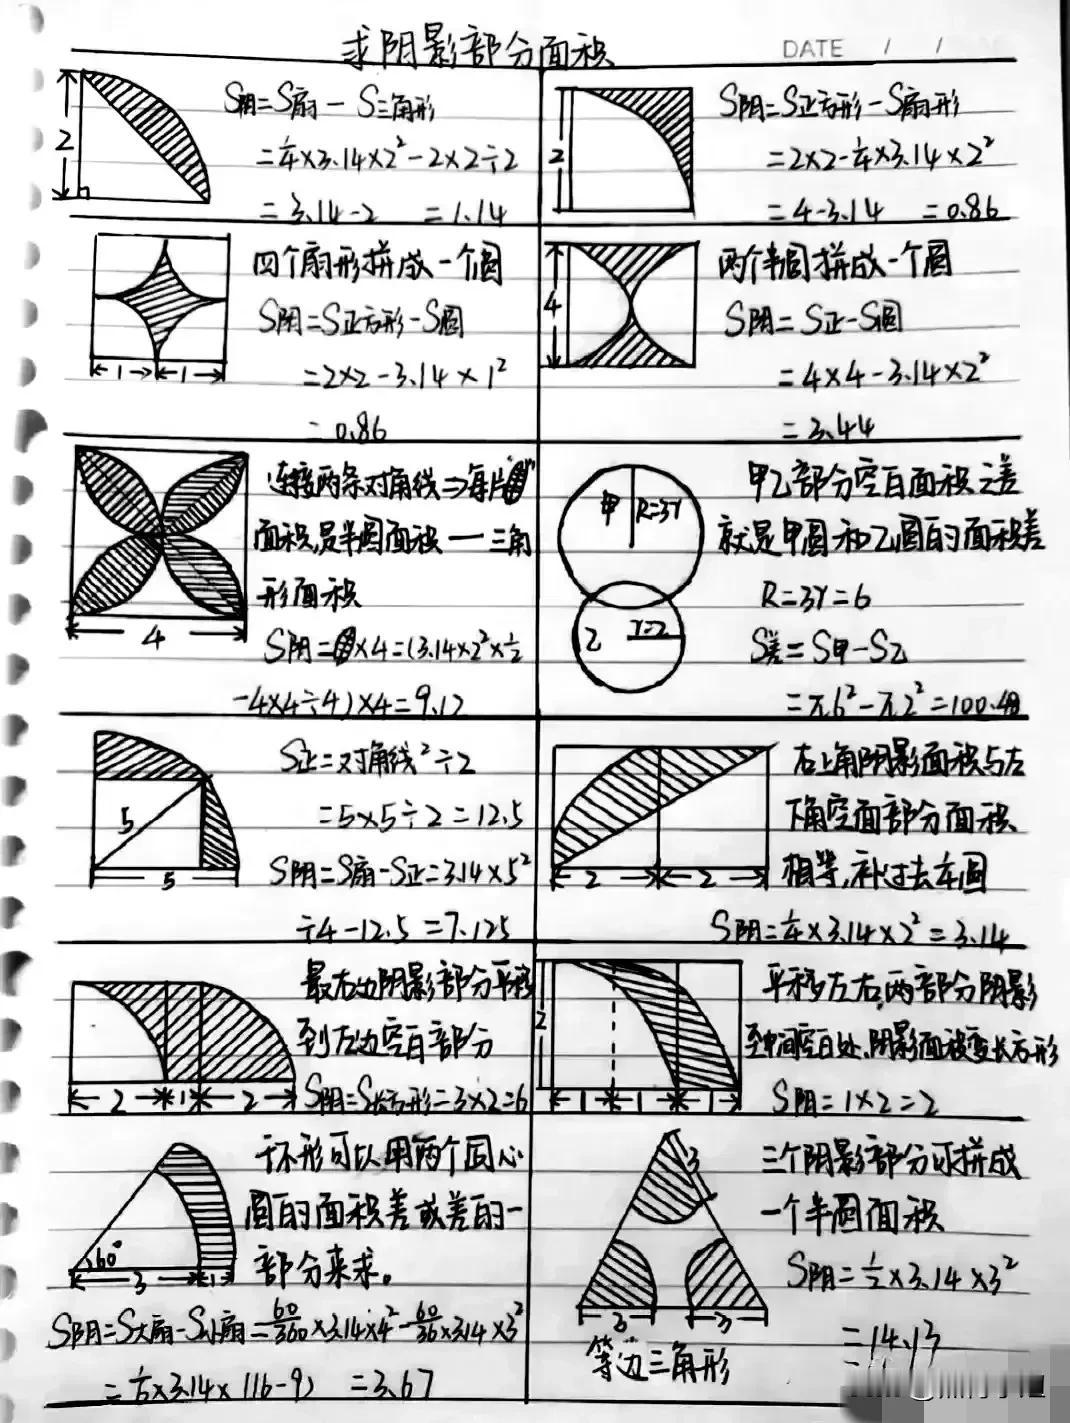 求阴影部分面积
DATE / /
2
S阴=S扇-S三角形
=¼×3.14×2²-2×2÷2
=3.14-2 =1.14
2
S阴=S正方形-S扇形
=2×2-¼×3.14×2²
=4-3.14 =0.86
1 1
四个扇形拼成一个圆
S阴=S正方形-S圆
=2×2-3.14×1²
=0.86
4
两个半圆拼成一个圆
S阴=S正-S圆
=4×4-3.14×2²
=3.44
4
连接两条对角线⇒每片
面积是半圆面积一三角
形面积
S阴=×4=(3.14×2²×½
-4×4÷4)×4=9.12
甲 R=3r
乙 r=2
甲乙部分空白面积之差
就是甲圆和乙圆的面积差
R=3r=6
S差=S甲-S乙
=π6²-π2²=100.48
5
5
S正=对角线²÷2
=5×5÷2=12.5
S阴=S扇-S正=3.14×5²
÷4-12.5=7.125
2 2
右上角阴影面积与左
下角空面部分面积
相等,补过去车圆
S阴=¼×3.14×2²=3.14
2 1 2
最右边阴影部分平移
到左边空白部分
S阴=S长方形=3×2=6
2
1 1 1
平移左右,两部分阴影
至中间空白处,阴影面积变长方形
S阴=1×2=2
60°
3 1
环形可以用两个同心
圆的面积差或差的一
部分来求。
S阴=S大扇-S小扇=60/360×3.14×4²-60/36×3.14×3²
=⅙×3.14×(16-9) =3.67
3
3 3
等边三角形
三个阴影部分可拼成
一个半圆面积
S阴=½×3.14×3²
=14.13